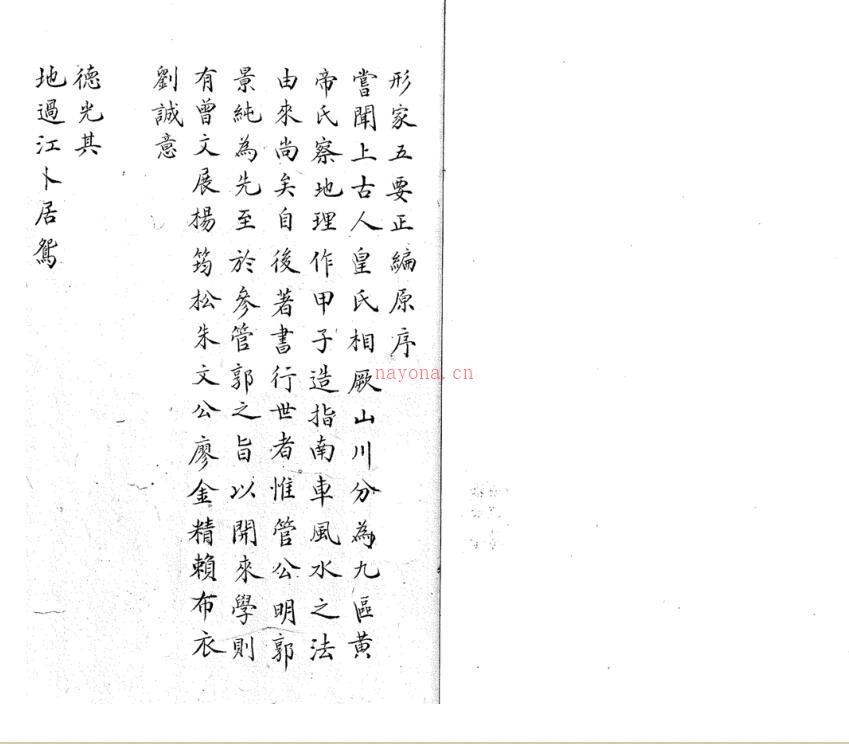 形家五要正編原序
嘗聞上古人皇氏相厥山川分為九區黃
帝氏察地理作甲子造指南車風水之法
由來尚矣自後著書行世者惟管公明郭
景純為先至於參管郭之旨以開來學則
有曾文展楊筠松朱文公廖金精賴布衣
劉誠意
德光其
地過江卜居鴛
nayona.cn